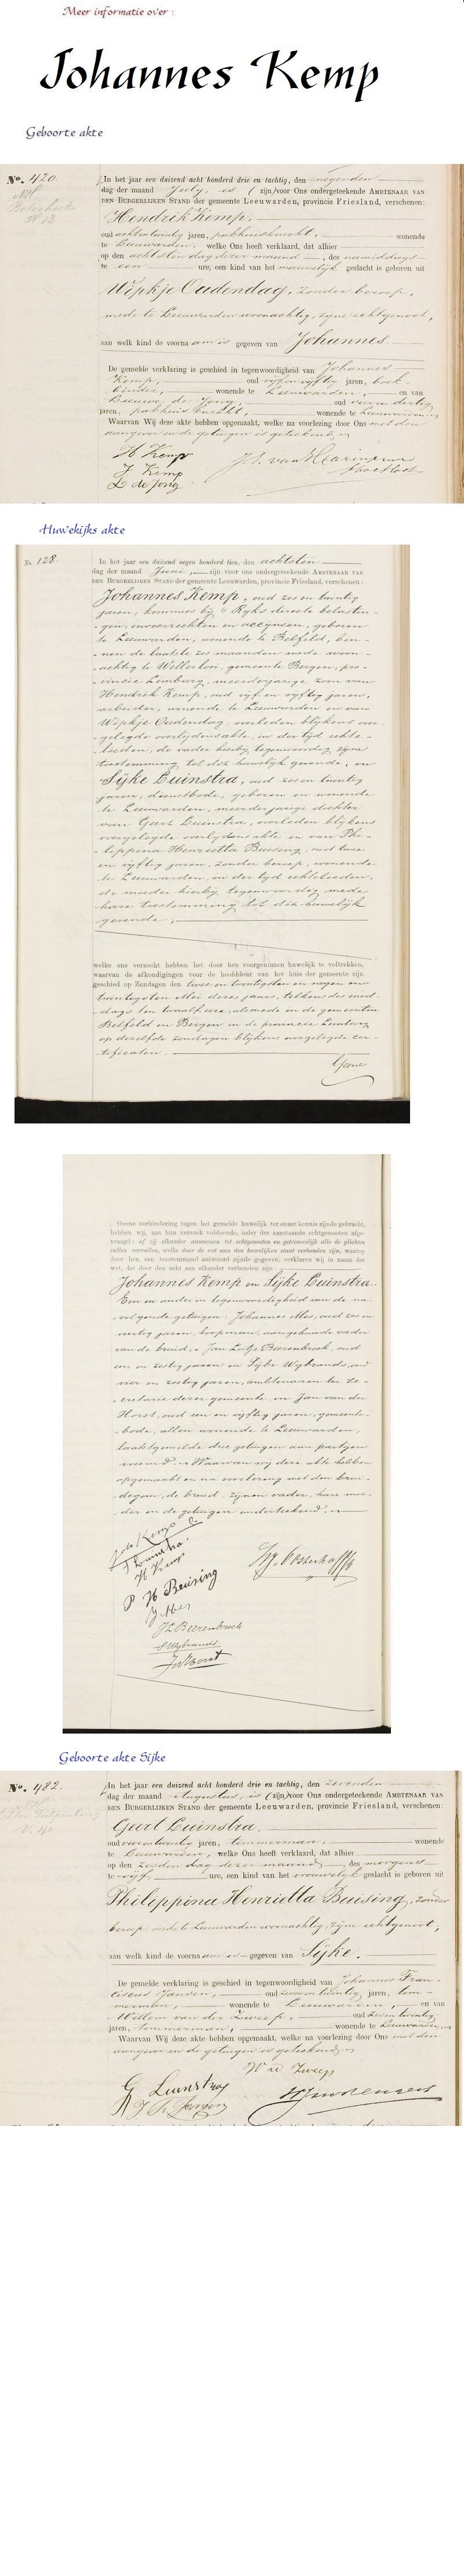 Meer informatie over :
Johannes Kemp
Geboorte akte
No. 420.
In het jaar een duizend acht honderd drie en tachtig, den negenden
dag der maand July, is (zijn) voor Ons ondergeteekende AMBTENAAR VAN
DEN BURGERLIJKEN STAND der gemeente Leeuwarden, provincie Friesland, verschenen:
Hendrik Kemp,
oud achtentwintig jaren, pakhuisknecht, wonende
te Leeuwarden, welke Ons heeft verklaard, dat alhier
op den achtsten dag dezer maand, des namiddags
te een ure, een kind van het mannelijk geslacht is geboren uit
Wipkje Oudendag, zonder beroep,
mede te Leeuwarden woonachtig, zijne echtgenoot,
aan welk kind de voorna am is gegeven van Johannes.
De gemelde verklaring is geschied in tegenwoordigheid van Johannes
Kemp, oud vijf en vijftig jaren, boek-
binder, wonende te Leeuwarden, en van
Leeuwe de Jong, oud vier en dertig
jaren, pakhuisknecht, wonende te Leeuwarden
Waarvan Wij deze akte hebben opgemaakt, welke na voorlezing door Ons met den
aangever en de getuigen is geteekend
H Kemp
J Kemp
L de Jong
Huwekijks akte
No. 128.
In het jaar een duizend negen honderd tien, den achtsten
dag der maand Juni, zijn voor ons ondergeteekende AMBTENAAR VAN
DEN BURGERLIJKEN STAND der gemeente Leeuwarden, provincie Friesland, verschenen:
Johannes Kemp, oud zes en twintig
jaren, kommies bij 's Rijks directe belastin-
gen, invoerrechten en accijnsen, geboren
te Leeuwarden, wonende te Belfeld, bin-
nen de laatste zes maanden mede woon-
achtig te Wellerlooi, gemeente Bergen, pro-
vincie Limburg, meerderjarige zoon van
Hendrik Kemp, oud vijf en vijftig jaren,
arbeider, wonende te Leeuwarden en van
Wipkje Oudendag, overleden blijkens over-
gelegde overlijdensakte, in der tijd echte-
lieden, de vader hierbij tegenwoordig zijne
toestemming tot dit huwelijk gevende, en
Sijke Luinstra, oud zes en twintig
jaren, dienstbode, geboren en wonende
te Leeuwarden, meerderjarige dochter
van Geert Luinstra, overleden blijkens
overgelegde overlijdensakte en van Phi-
lippina Henrietta Buising, oud twee
en vijftig jaren, zonder beroep, wonende
te Leeuwarden, in der tijd echtelieden,
de moeder hierbij tegenwoordig mede
hare toestemming tot dit huwelijk
gevende,
welke ons verzocht hebben het door hen voorgenomen huwelijk te voltrekken,
waarvan de afkondigingen voor de hoofddeur van het huis der gemeente zijn
geschied op Zondagen den twee en twintigsten en negen en
twintigsten Mei dezes jaars, telkens des mid-
dags ten twaalf ure, alsmede in de gemeenten
Belfeld en Bergen in de provincie Limburg
op dezelfde zondagen blijkens overgelegde cer-
tificaten.
Geene
Geene verhindering tegen het gemelde huwelijk ter onzer kennis zijnde gebracht,
hebben wij, aan hun verzoek voldoende, ieder der aanstaande echtgenooten afge-
vraagd: of zij elkander aannemen tot echtgenooten en getrouwelijk alle de plichten
zullen vervullen, welke door de wet aan den huwelijken staat verbonden zijn, waarop
door hen een toestemmend antwoord zijnde gegeven, verklaren wij in naam der
wet, dat door den echt aan elkander verbonden zijn:
Johannes Kemp en Sijke Luinstra.
Een en ander in tegenwoordigheid van de na-
volgende getuigen: Johannes Mes, oud zes en
veertig jaren, koopman, aangehuwde vader
van de bruid, Jan Lutje Beerenbroek, oud
een en zestig jaren en Sijbe Wybrands, oud
vier en zestig jaren, ambtenaren ter se-
cretarie dezer gemeente, en Jan van der
Horst, oud een en vijftig jaren, gemeente-
bode, allen wonende te Leeuwarden,
laatstgemelde drie getuigen aan partijen
vreemd. Waarvan wij deze akte hebben
opgemaakt en na voorlezing met den brui-
degom, de bruid, zijnen vader, hare moe-
der en de getuigen onderteekend.
Joh. Kemp
S Luinstra.
H Kemp
P H Buising
J Mes
JL Beerenbroek
S Wybrands
JvdHorst
Geboorte akte Sijke
No. 482.
In het jaar een duizend acht honderd drie en tachtig, den zevenden
dag der maand Augustus, is (zijn) voor Ons ondergeteekende AMBTENAAR VAN
DEN BURGERLIJKEN STAND der gemeente Leeuwarden, provincie Friesland, verschenen:
Geert Luinstra,
oud vierentwintig jaren, timmerman, wonende
te Leeuwarden, welke Ons heeft verklaard, dat alhier
op den zesden dag dezer maand, des morgens
te vijf ure, een kind van het vrouwelijk geslacht is geboren uit
Philippina Henrietta Buising, zonder
beroep, mede te Leeuwarden woonachtig, zijne echtgenoot,
aan welk kind de voorna am is gegeven van Sijke.
De gemelde verklaring is geschied in tegenwoordigheid van Johannes Fran-
ciscus Jansen, oud zevenentwintig jaren, tim-
merman, wonende te Leeuwarden, en van
Willem van der Zweep, oud zeven en twintig
jaren, timmerman, wonende te Leeuwarden
Waarvan Wij deze akte hebben opgemaakt, welke na voorlezing door Ons met den
aangever en de getuigen is geteekend
W vd Zweep
G Luinstra
J F Jansen